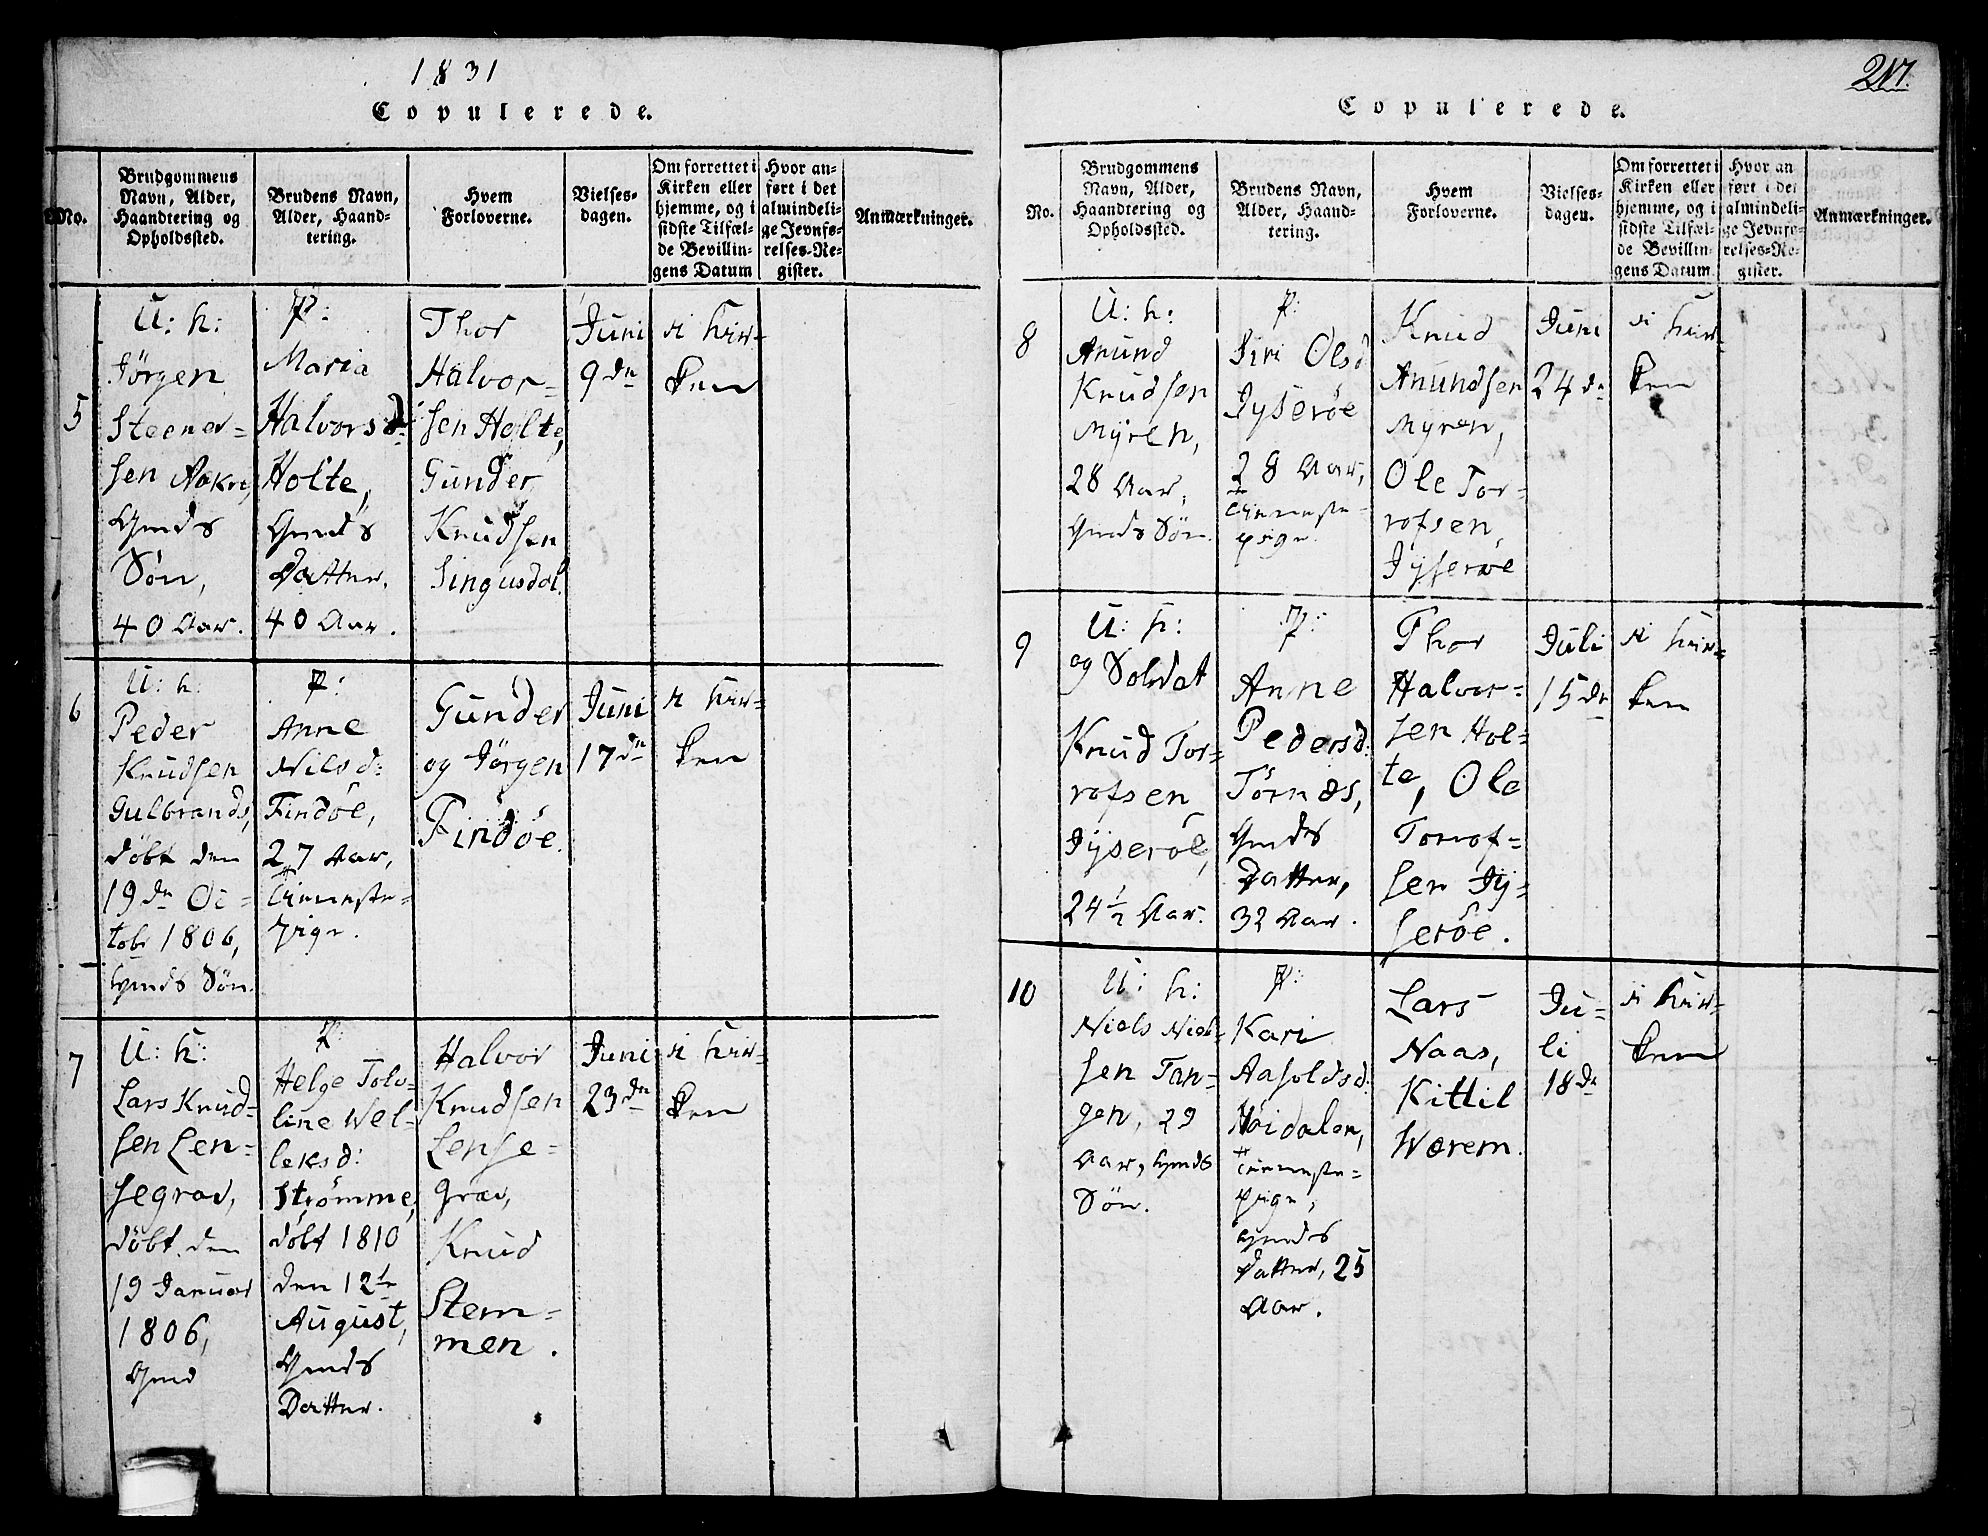 1831
Copulerede.
No.
Brudgommens
Navn, Alder,
Haandtering og
Opholdssted.
Brudens Navn,
Alder, Haand-
tering.
Hvem
Forloverne.
Vielses-
dagen.
Om forrettet i
Kirken eller
hjemme, og i
sidste Tilfæl-
de Bevillin-
gens Datum
Hvor an-
ført i det
almindeli-
ge Jevnfø-
relses-Re-
gister.
Anmærkninger.
5
U: k:
Jörgen
Steener=
sen Aakre,
Gmds
Sön,
40 Aar.
P:
Maria
Halvorsd:
Holte,
Gmds
Datter.
40 Aar.
Thor
Halvor=
sen Holte,
Gunder
Knudsen
Singusdal.
Juni
9de
i Kir=
ken
6
U: k:
Peder
Knudsen
Gulbrands,
döbt den
19de Oc=
tobr 1806,
Gmds Sön.
P:
Anne
Nilsd:
Findöe,
27 Aar,
Tieneste=
pige.
Gunder
og Jörgen
Findöe.
Juni
17de
i Kir=
ken
7
U: k:
Lars Knud=
sen Len=
segrav,
döbt den
19 Januar
1806,
Gmd
P:
Helge Tolv=
line Wel=
leksd:
Strömme,
döbt 1810
den 12te
August,
Gmds
Datter.
Halvor
Knudsen
Lense=
grav,
Knud
Stem=
men.
Juni
23de
i Kir=
ken
217.
Copulerede.
No.
Brudgommens
Navn, Alder,
Haandtering og
Opholdssted.
Brudens Navn,
Alder, Haand-
tering.
Hvem
Forloverne.
Vielses-
dagen.
Om forrettet i
Kirken eller
hjemme, og i
sidste Tilfæl-
de Bevillin-
gens Datum
Hvor an
ført i det
almindeli-
ge Jevnfø-
relses-Re-
gister.
Anmærkninger.
8
U: k:
Anund
Knudsen
Myren,
28 Aar,
Gmds Sön.
P:
Siri Olsd
Jyseröe
28 Aar,
Tieneste=
pige.
Knud
Anundsen
Myren,
Ole Tor=
rofsen,
Jyseröe
Juni
24de
i Kir=
ken
9
U: k:
og Soldat
Knud Tor=
rofsen
Jyseröe,
24½ Aar.
P:
Anne
Pedersd:
Törnæs,
Gmds
Datter,
32 Aar.
Thor
Halvor=
sen Hol=
te, Ole
Torrof=
sen Jy=
seröe.
Juli
15de
i Kir=
ken
10
U: k:
Niels Niel=
sen Tan=
gen, 29
Aar, Gmds
Sön.
P:
Kari
Aasoldsd:
Höidalen,
Tieneste=
pige,
Gmds
Datter, 25
Aar.
Lars
Naas,
Kittil
Wærem.
Ju=
li
18de
i Kir=
ken